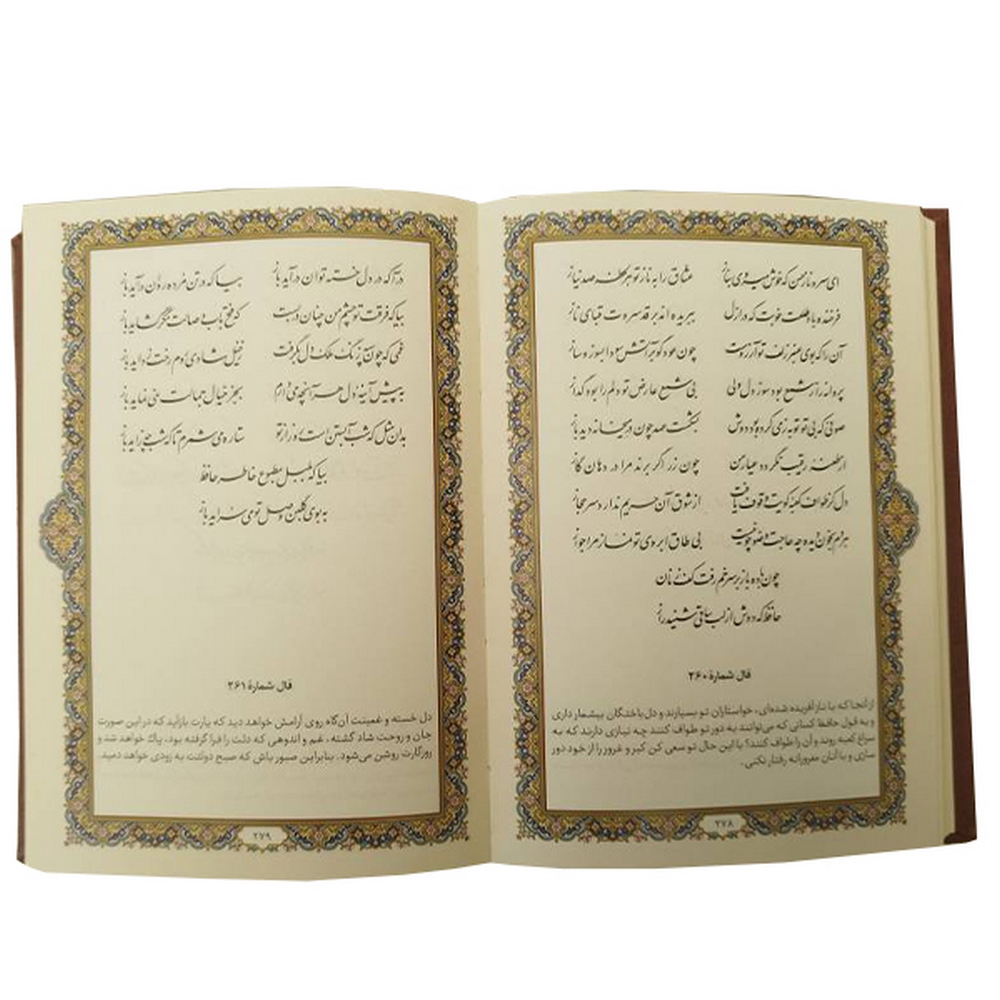 ای سرو ناز حسن که خوش میروی بناز عشاق را به ناز تو هر لحظه صد نیاز
فرخنده باد طلعت خوبت که در ازل ببریده اند بر قد سروت قبای ناز
آن را که بوی عنبر زلف تو آرزوست چون عود گو بر آتش سودا بسوز و ساز
پروانه را ز شمع بود سوز دل ولی بی شمع عارض تو دلم را بود گداز
صوفی که بی تو توبه ز می کرده بود دوش بشکست عهد چون در میخانه دید باز
از طعنه رقیب نگردد عیار من چون زر اگر برند مرا در دهان گاز
دل کز طواف کعبه کویت وقوف یافت از شوق آن حریم ندارد سر حجاز
هر دم بخون دیده چه حاجت وضو چو نیست بی طاق ابروی تو نماز مرا جواز
چون باده باز بر سر خم رفت کف زنان
حافظ که دوش از لب ساقی شنید راز
فال شمارهٔ ۲۶۰
از آنجا که با ناز آفریده شده‌ای، خواستاران تو بسیارند و دل‌باختگان بیشمار داری
و به قول حافظ کسانی که می‌توانند به دور تو طواف کنند چه نیازی دارند که به
سراغ کعبه روند و آن را طواف کنند؟ با این حال تو سعی کن کبر و غرور را از خود دور
سازی و با آنان مغرورانه رفتار نکنی.
۲۷۸
درآ که در دل خسته توان درآید باز بیا که در تن مرده روان درآید باز
بیا که فرقت تو چشم من چنان در بست که فتح باب وصالت مگر گشاید باز
غمی که چون سپه زنگ ملک دل بگرفت ز خیل شادی روم رخت زداید باز
به پیش آینه دل هر آنچه می دارم بجز خیال جمالت نمی نماید باز
بدان مثل که شب آبستن است روز از تو ستاره می شمرم تا که شب چه زاید باز
بیا که بلبل مطبوع خاطر حافظ
به بوی گلبن وصل تو می سراید باز
فال شمارهٔ ۲۶۱
دل خسته و غمینت آن‌گاه روی آرامش خواهد دید که یارت بازآید که در این صورت
جان و روحت شاد گشته، غم و اندوهی که دلت را فرا گرفته بود، پاك خواهد شد و
روزگارت روشن می‌شود. بنابراین صبور باش که صبح دولتت به زودی خواهد دمید.
۲۷۹